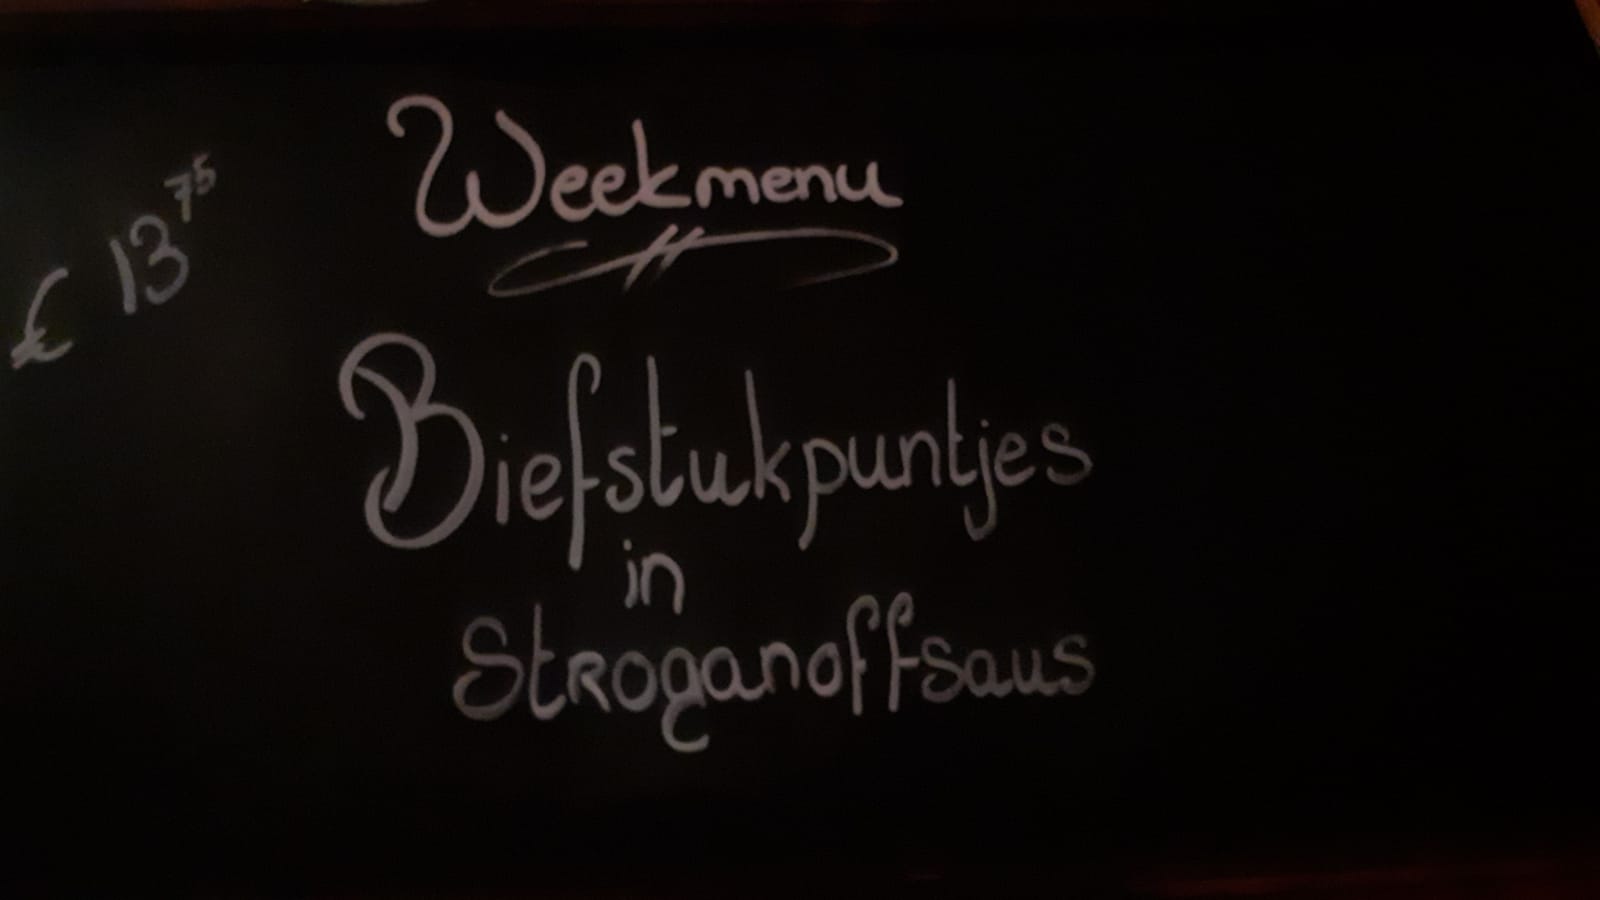 Weekmenu
€ 13 75
Biefstukpuntjes
in
Stroganoffsaus